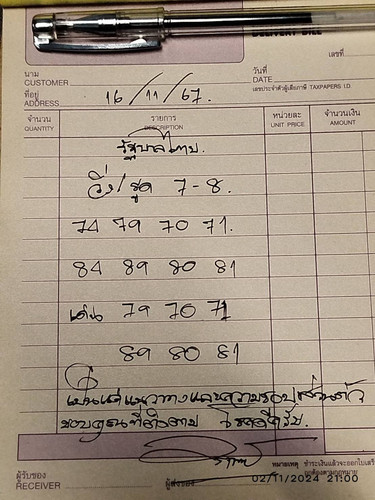 DELIVERY BILL
เลขที่
นาม
CUSTOMER
วันที่
DATE
ที่อยู่
ADDRESS
เลขประจำตัวผู้เสียภาษี TAXPAPERS I.D.
16/11/67.
จำนวน
QUANTITY
รายการ
DESCRIPTION
หน่วยละ
UNIT PRICE
จำนวนเงิน
AMOUNT
รัฐบาลไทย.
วิ่ง/รูด 7-8.
74 79 70 71.
84 89 80 81
เด่น 79 70 71
89 80 81
เป็นแค่แนวทางและความชอบส่วนตัว
ขอบคุณที่ติดตาม โชคดีครับ.
ผู้รับของ
RECEIVER
ผู้ส่งของ
หมายเหตุ ชำระเงินแล้วจะออกใบเสร็จ
ถูกต้องตามกฎหมาย
02/11/2024 21:00